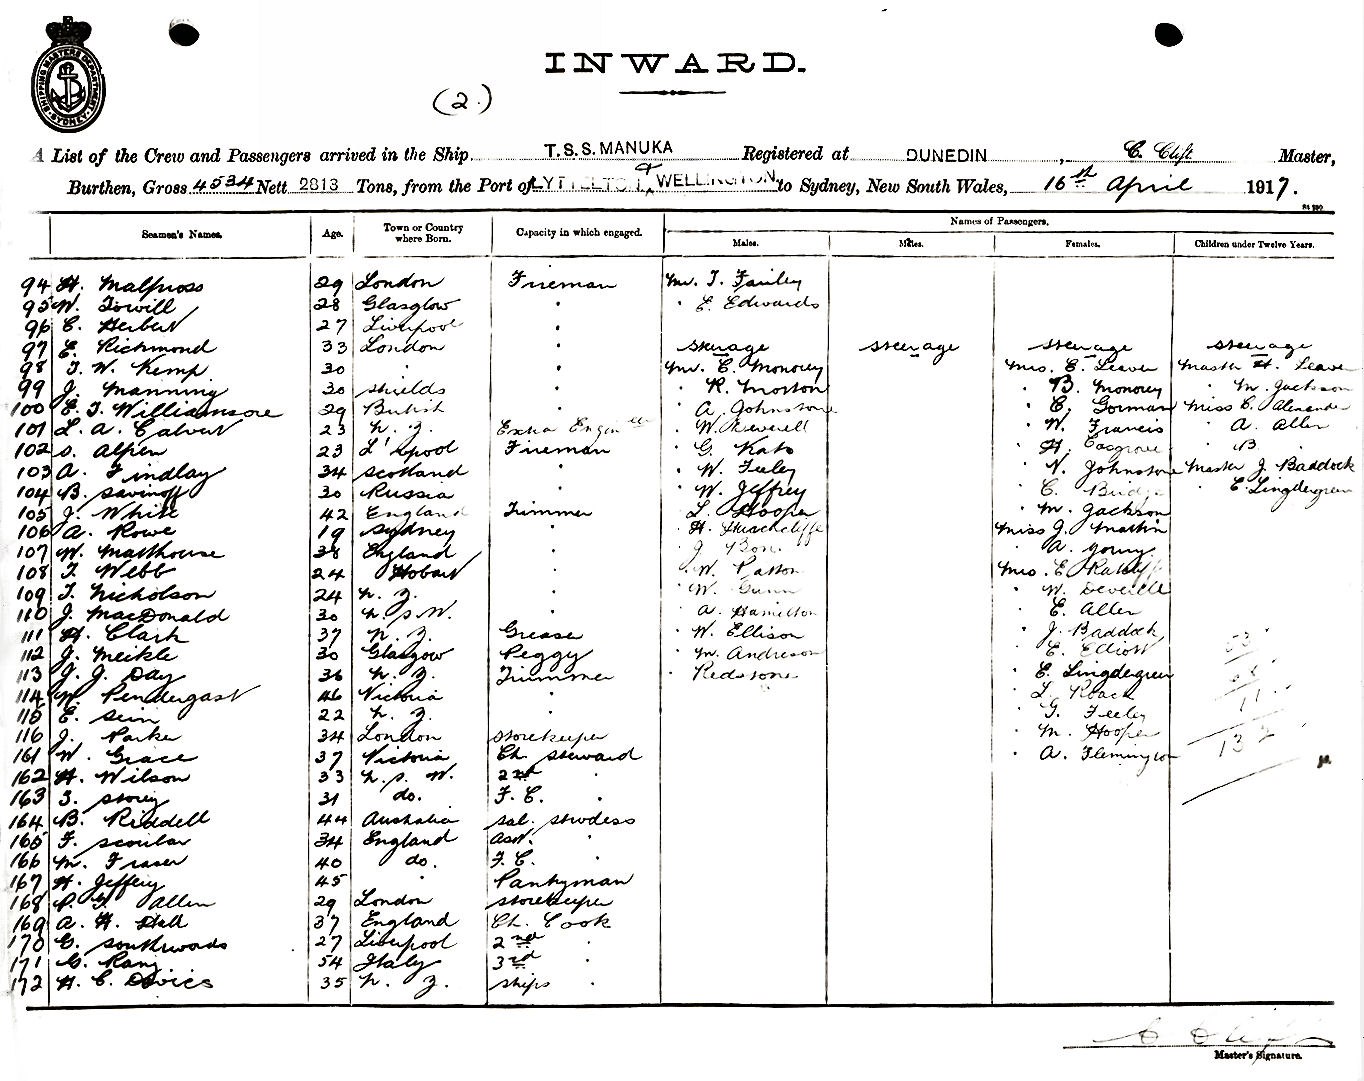 SHIPPING MASTERS DEPARTMENT SYDNEY
INWARD.
(2.)
A List of the Crew and Passengers arrived in the Ship T.S.S. MANUKA Registered at DUNEDIN, C. Clift Master,
Burthen, Gross 4534 Nett 2813 Tons, from the Port of LYTTELTON & WELLINGTON to Sydney, New South Wales, 16th April 1917.
Seamen's Names. Age. Town or Country where Born. Capacity in which engaged. Names of Passengers.
Males. Males. Females. Children under Twelve Years.
94 H. Malpross 29 London Fireman Mr. T. Fairley
95 W. Towill 28 Glasgow " " E. Edwards
96 C. Herbert 27 Liverpool "
97 E. Richmond 33 London " steerage steerage steerage steerage
98 T. W. Kemp 30 " " Mr. E. Monorey Mrs. E. Leaver Master H. Leaver
99 J. Manning 30 Shields " " R. Moston " B. Monorey " M. Jackson
100 E. T. Williamsore 29 British " " A. Johnstone " E. Gorman Miss C. Alexander
101 L. A. Calvert 23 N. Z. Extra Engineer " W. Deverell " W. Francis " A. Aller
102 S. Alpen 23 L'pool Fireman " G. Kato " H. Cosgrove " B. "
103 A. Findlay 34 Scotland " " W. Feeley " N. Johnstone Master J. Baddock
104 B. Savinoff 30 Russia " " W. Jeffrey " C. Bridge " E. Lingdergreen
105 J. White 42 England Trimmer " L. Hooper " M. Jackson
106 A. Rowe 19 Sydney " " H. Hinchcliffe Miss J. Martin
107 W. Matthouse 38 England " " J. " A.
108 T. Webb 24 Hobart " " W. Patton Mrs. E. Ratcliff
109 T. Nicholson 24 N. Z. " " W. Gunn " W. Deverell
110 J. MacDonald 30 N. S. W. " " A. Hamilton " E. Aller
111 H. Clark 37 N. Z. Grease " W. Ellison " J. Baddock
112 J. Meikle 30 Glasgow Peggy " M. Andreson " E. Elliott
113 J. J. Day 36 N. Z. Trimmer " Redstone " E. Lingdergreen
114 W. Pendergast 46 Victoria " " L. Roach
115 E. Sein 22 N. Z. " " T. Feeley
116 J. Parke 34 London Storekeeper " M. Hooper
161 W. Grace 37 Victoria Ch. Steward " A. Flemington
162 H. Wilson 33 N. S. W. 2nd "
163 T. Storey 31 do. F. C. "
164 B. Riddell 44 Australia Sal. Stwdess
165 F. Scoular 34 England Asst. "
166 M. Fraser 40 do. F. C. "
167 H. Jeffery 45 " Pantryman
168 P. G. Allen 29 London Storekeeper
169 A. H. Hall 37 England Ch. Cook
170 G. Southwoods 27 Liverpool 2nd "
171 G. Rani 54 Italy 3rd "
172 H. C. Davies 35 N. Z. Ships "
11
132
C. Clift
Master's Signature.